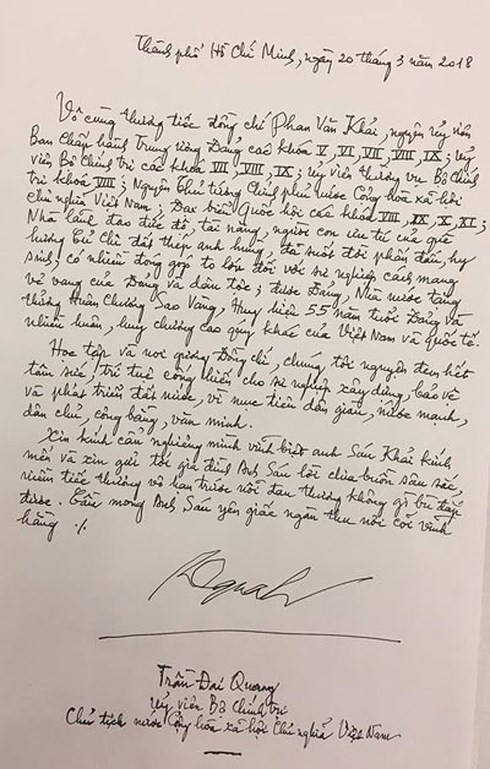 Thành phố Hồ Chí Minh, ngày 20 tháng 3 năm 2018
Vô cùng thương tiếc đồng chí Phan Văn Khải, nguyên ủy viên
Ban Chấp hành Trung ương Đảng các khóa V, VI, VII, VIII, IX; ủy
viên Bộ Chính trị các khóa VII, VIII, IX; ủy viên thường vụ Bộ Chính
trị khóa VIII; Nguyên Thủ tướng Chính phủ nước Cộng hòa xã hội
chủ nghĩa Việt Nam; Đại biểu Quốc hội các khóa VIII, IX, X, XI;
Nhà lãnh đạo đức độ, tài năng, người con ưu tú của quê
hương Củ Chi đất thép anh hùng, đã suốt đời phấn đấu, hy
sinh, có nhiều đóng góp to lớn đối với sự nghiệp cách mạng
vẻ vang của Đảng và dân tộc; được Đảng, Nhà nước tặng
thưởng Huân chương Sao Vàng, Huy hiệu 55 năm tuổi Đảng và
nhiều huân, huy chương cao quý khác của Việt Nam và quốc tế.
Học tập và noi gương Đồng chí, chúng tôi nguyện đem hết
tâm sức, trí tuệ cống hiến cho sự nghiệp xây dựng, bảo vệ
và phát triển đất nước, vì mục tiêu dân giàu, nước mạnh,
dân chủ, công bằng, văn minh.
Xin kính cẩn nghiêng mình vĩnh biệt anh Sáu Khải kính
mến và xin gửi tới gia đình Anh Sáu lời chia buồn sâu sắc,
niềm tiếc thương vô hạn trước nỗi đau thương không gì bù đắp
được. Cầu mong Anh Sáu yên giấc ngàn thu nơi cõi vĩnh
hằng ./.
Trần Đại Quang
Ủy viên Bộ Chính trị
Chủ tịch nước Cộng hòa xã hội Chủ nghĩa Việt Nam